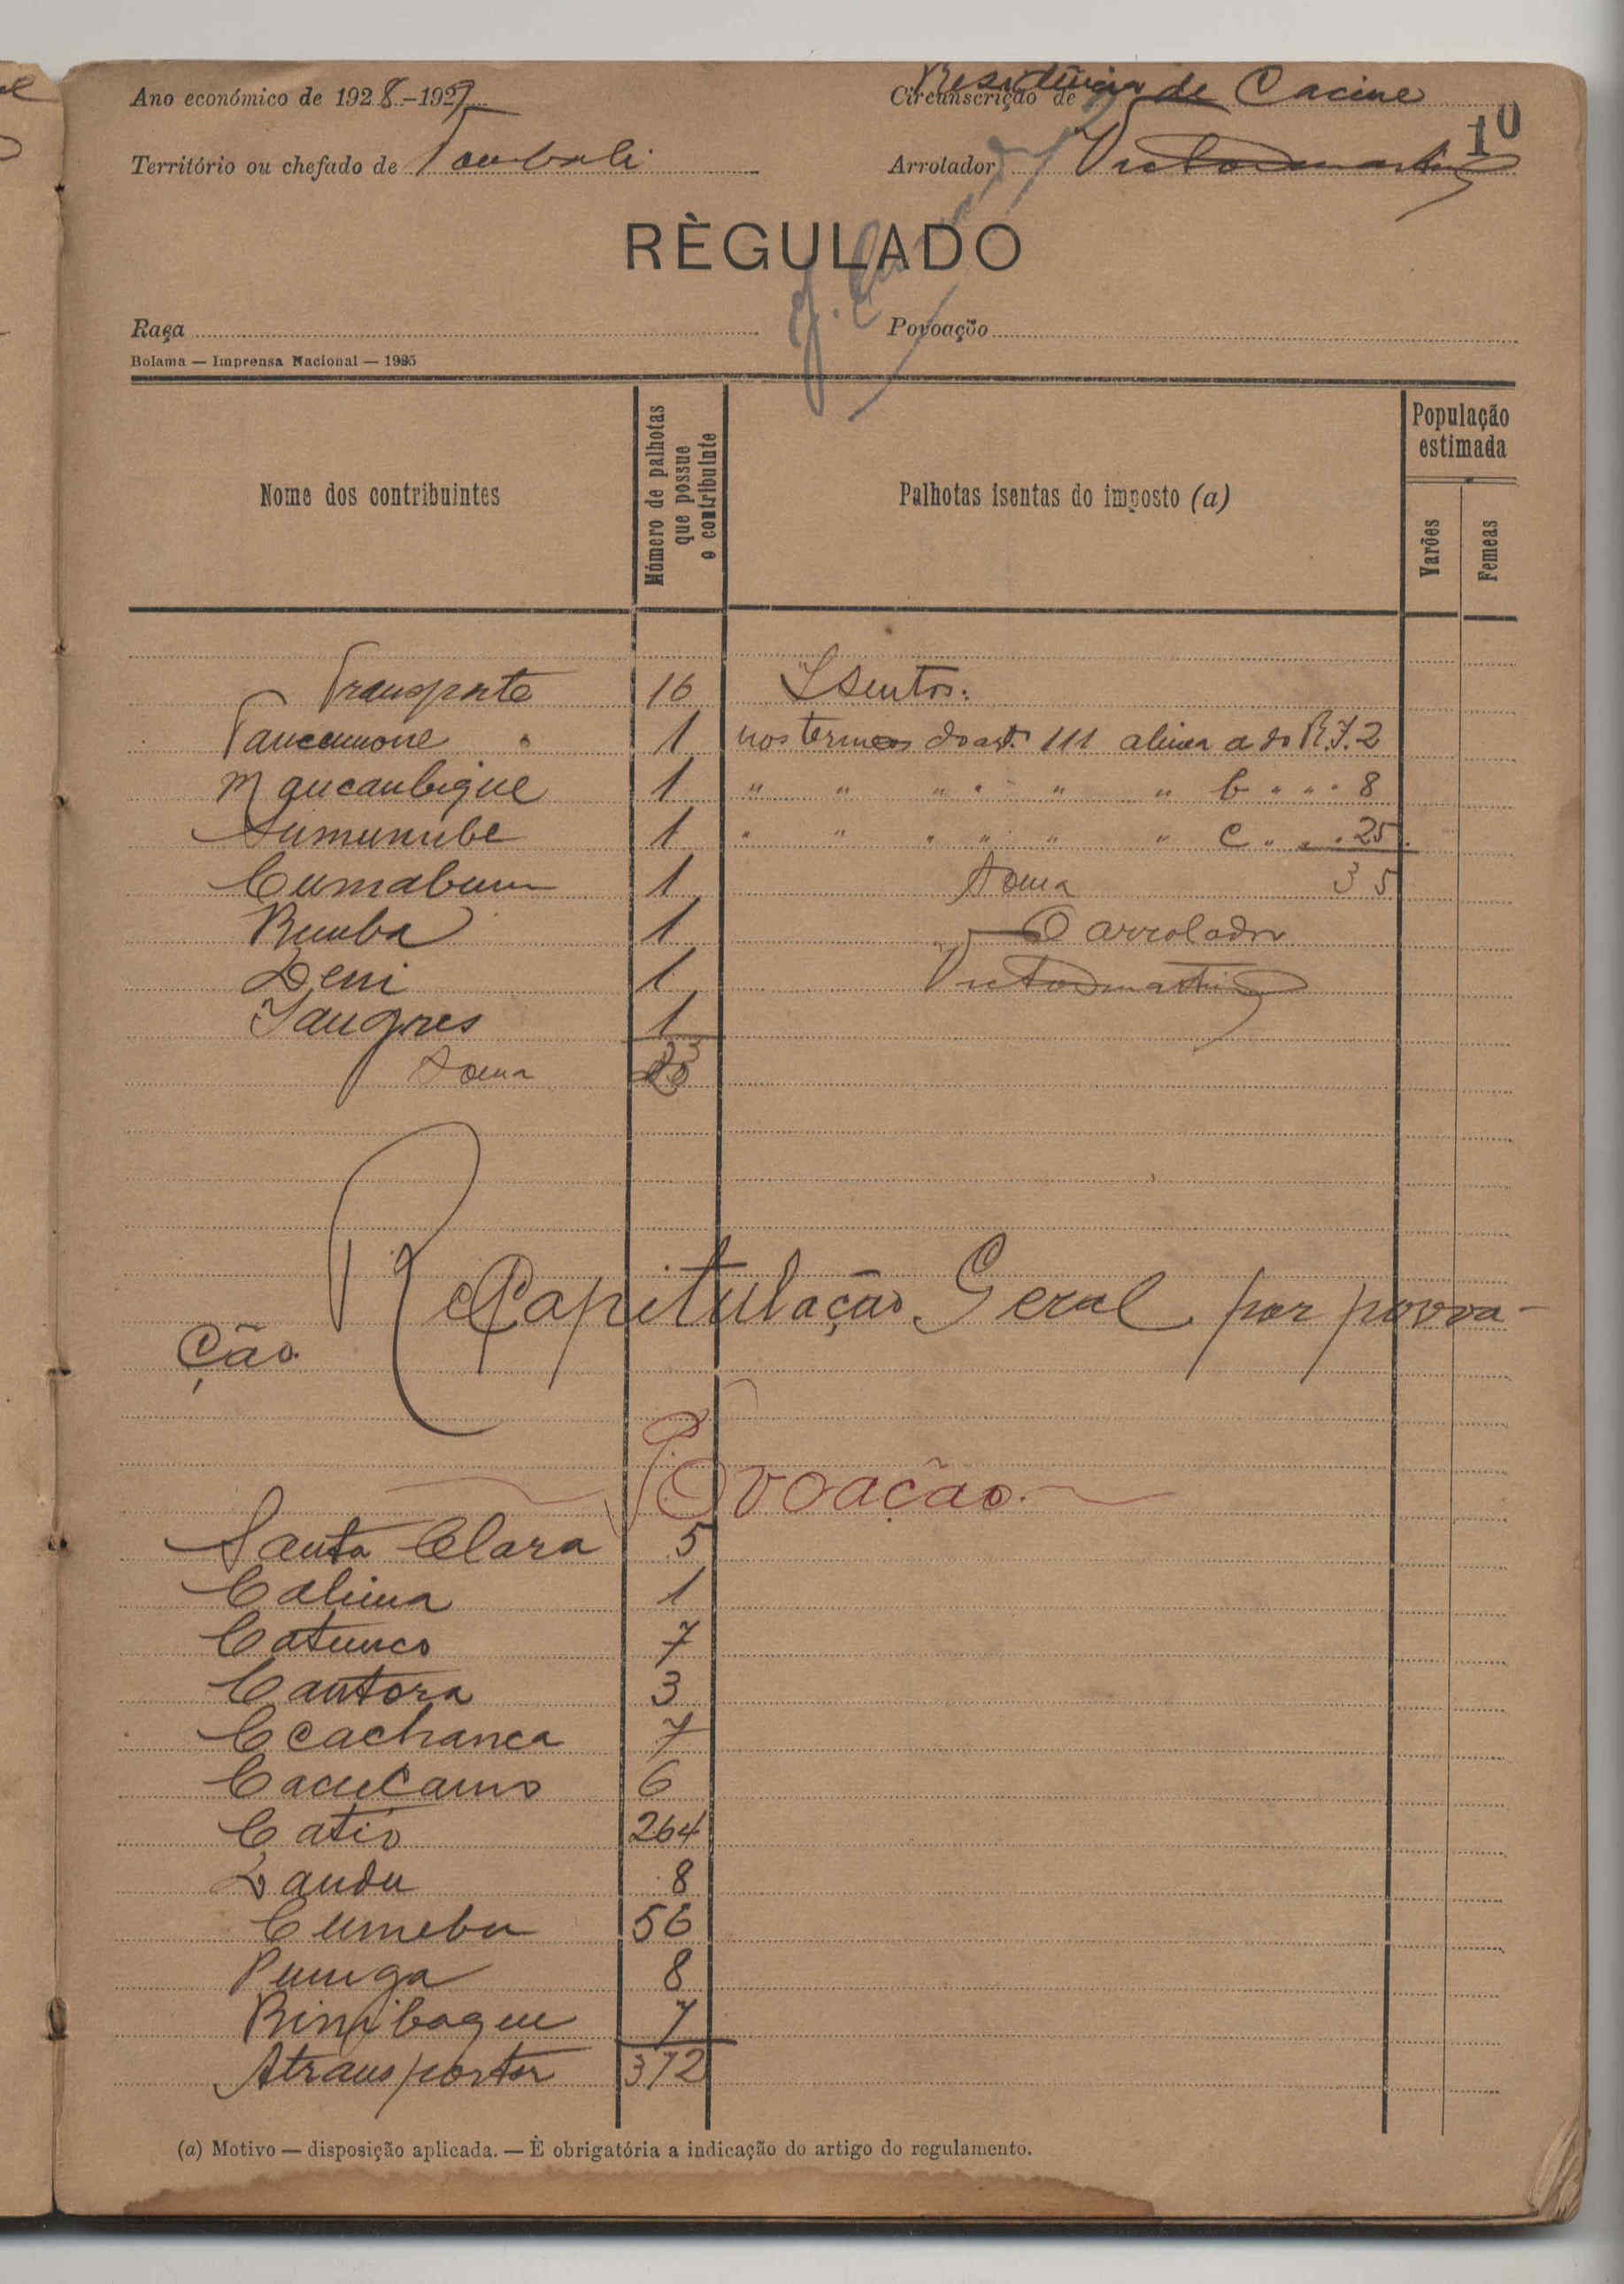 Ano económico de 1928-1929
Residência de Cacine
Circunscrição de
10
Território ou chefado de Tombali
Arrolador Victor Martins
RÈGULADO
Raça
Povoação
Bolama — Imprensa Nacional — 1925
Nome dos contribuintes
Número de palhotas que possue o contribuinte
Palhotas isentas do imposto (a)
População estimada
Varões
Femeas
Transporte 16 Isentos:
1 nos termos do art. 111 alinea a do R.I. 2
Maucaubique 1 " " " " " " b " " " 8
Sumunube 1 " " " " " " c " " " 25
Cumabum 1 Soma 35
Bumba 1 O arrolador
Deni 1 Victor Martins
1
Soma 23
Recapitulação Geral por povoa-
ção
Povoação
Santa Clara 5
Calima 1
Catunco 7
Cantora 3
Ccachanca 7
6
Catió 264
Landu 8
Cumebu 56
Punga 8
7
A transportar 372
(a) Motivo — disposição aplicada. — È obrigatória a indicação do artigo do regulamento.